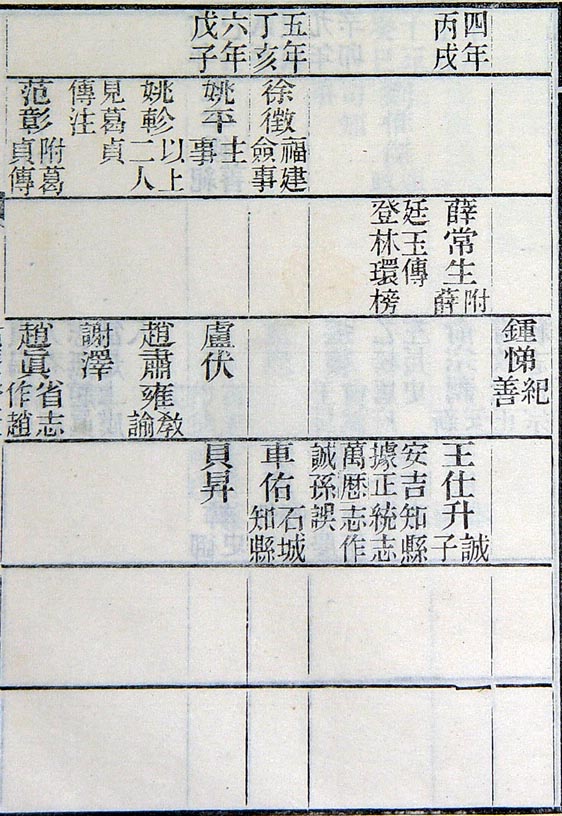 四年
丙戌
五年
丁亥
六年
戊子
徐徵福建
僉事
姚平主
事
姚軫以上
二人
見葛貞
傳注
范彰附葛
貞傳
薛常生附
薛
廷玉傳
登林環榜
鍾悌紀
善
盧伏
趙肅雍教
諭
謝澤
趙眞省志
作趙
王仕升誠
子
安吉知縣
據正統志
萬厯志作
誠孫誤
車佑石城
知縣
貝昇